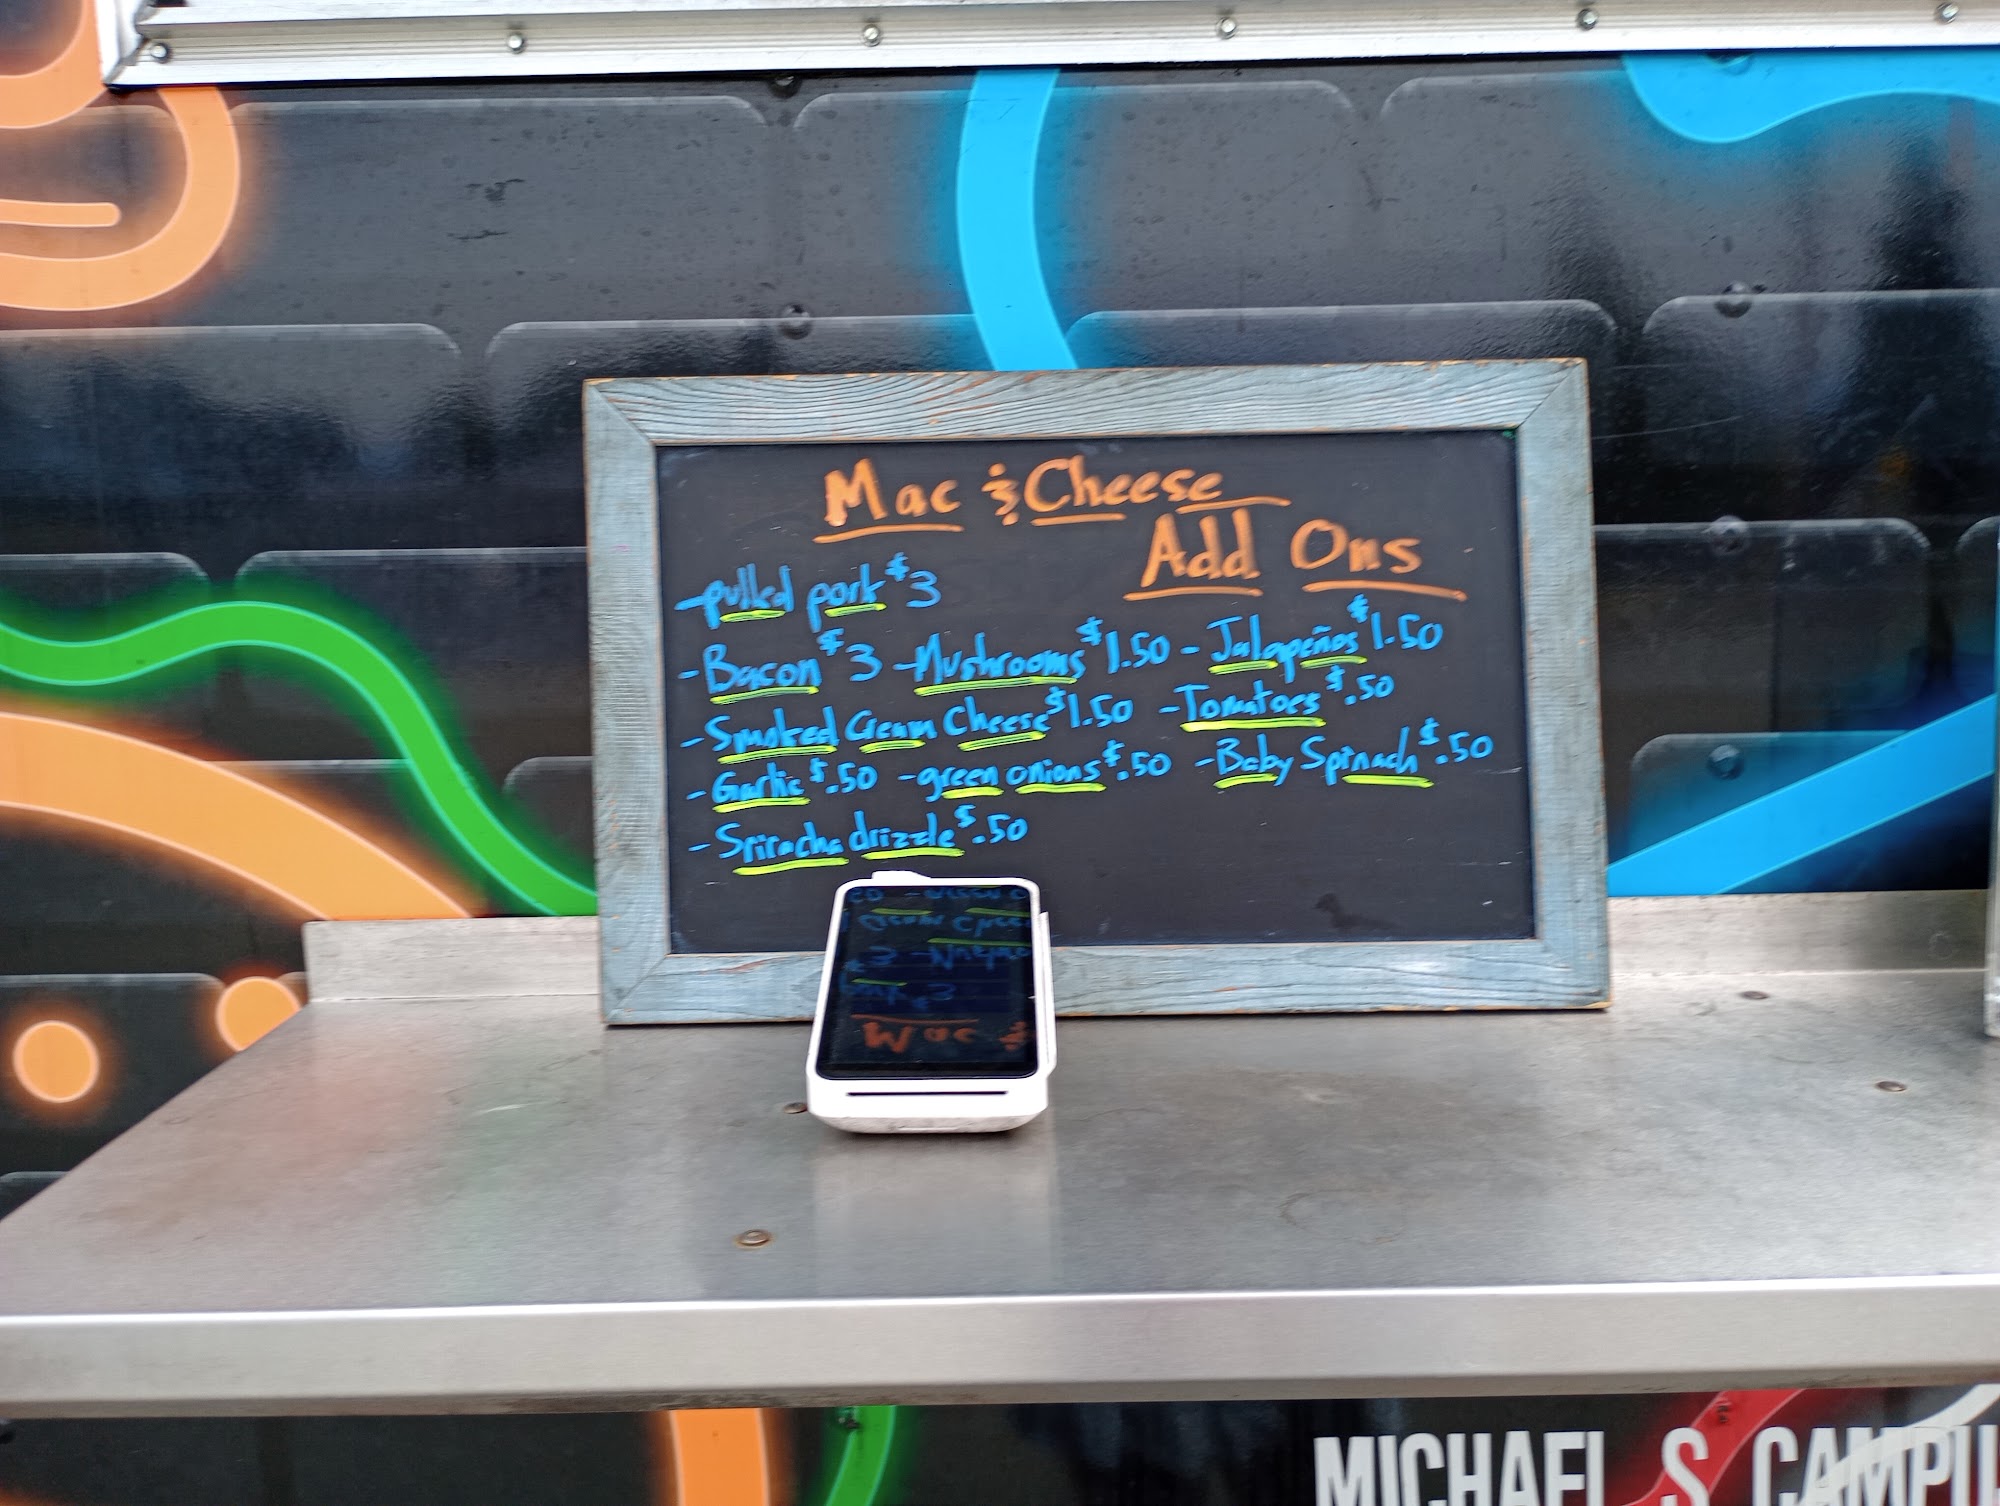 Mac & Cheese
Add Ons
- pulled pork $3
- Bacon $3 - Mushrooms $1.50 - Jalapeños $1.50
- Smoked Cream Cheese $1.50 - Tomatoes $.50
- Garlic $.50 - green onions $.50 - Baby Spinach $.50
- Sriracha drizzle $.50
MICHAEL S CAMPU